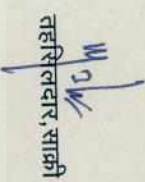 तहसिलदार,साक्री